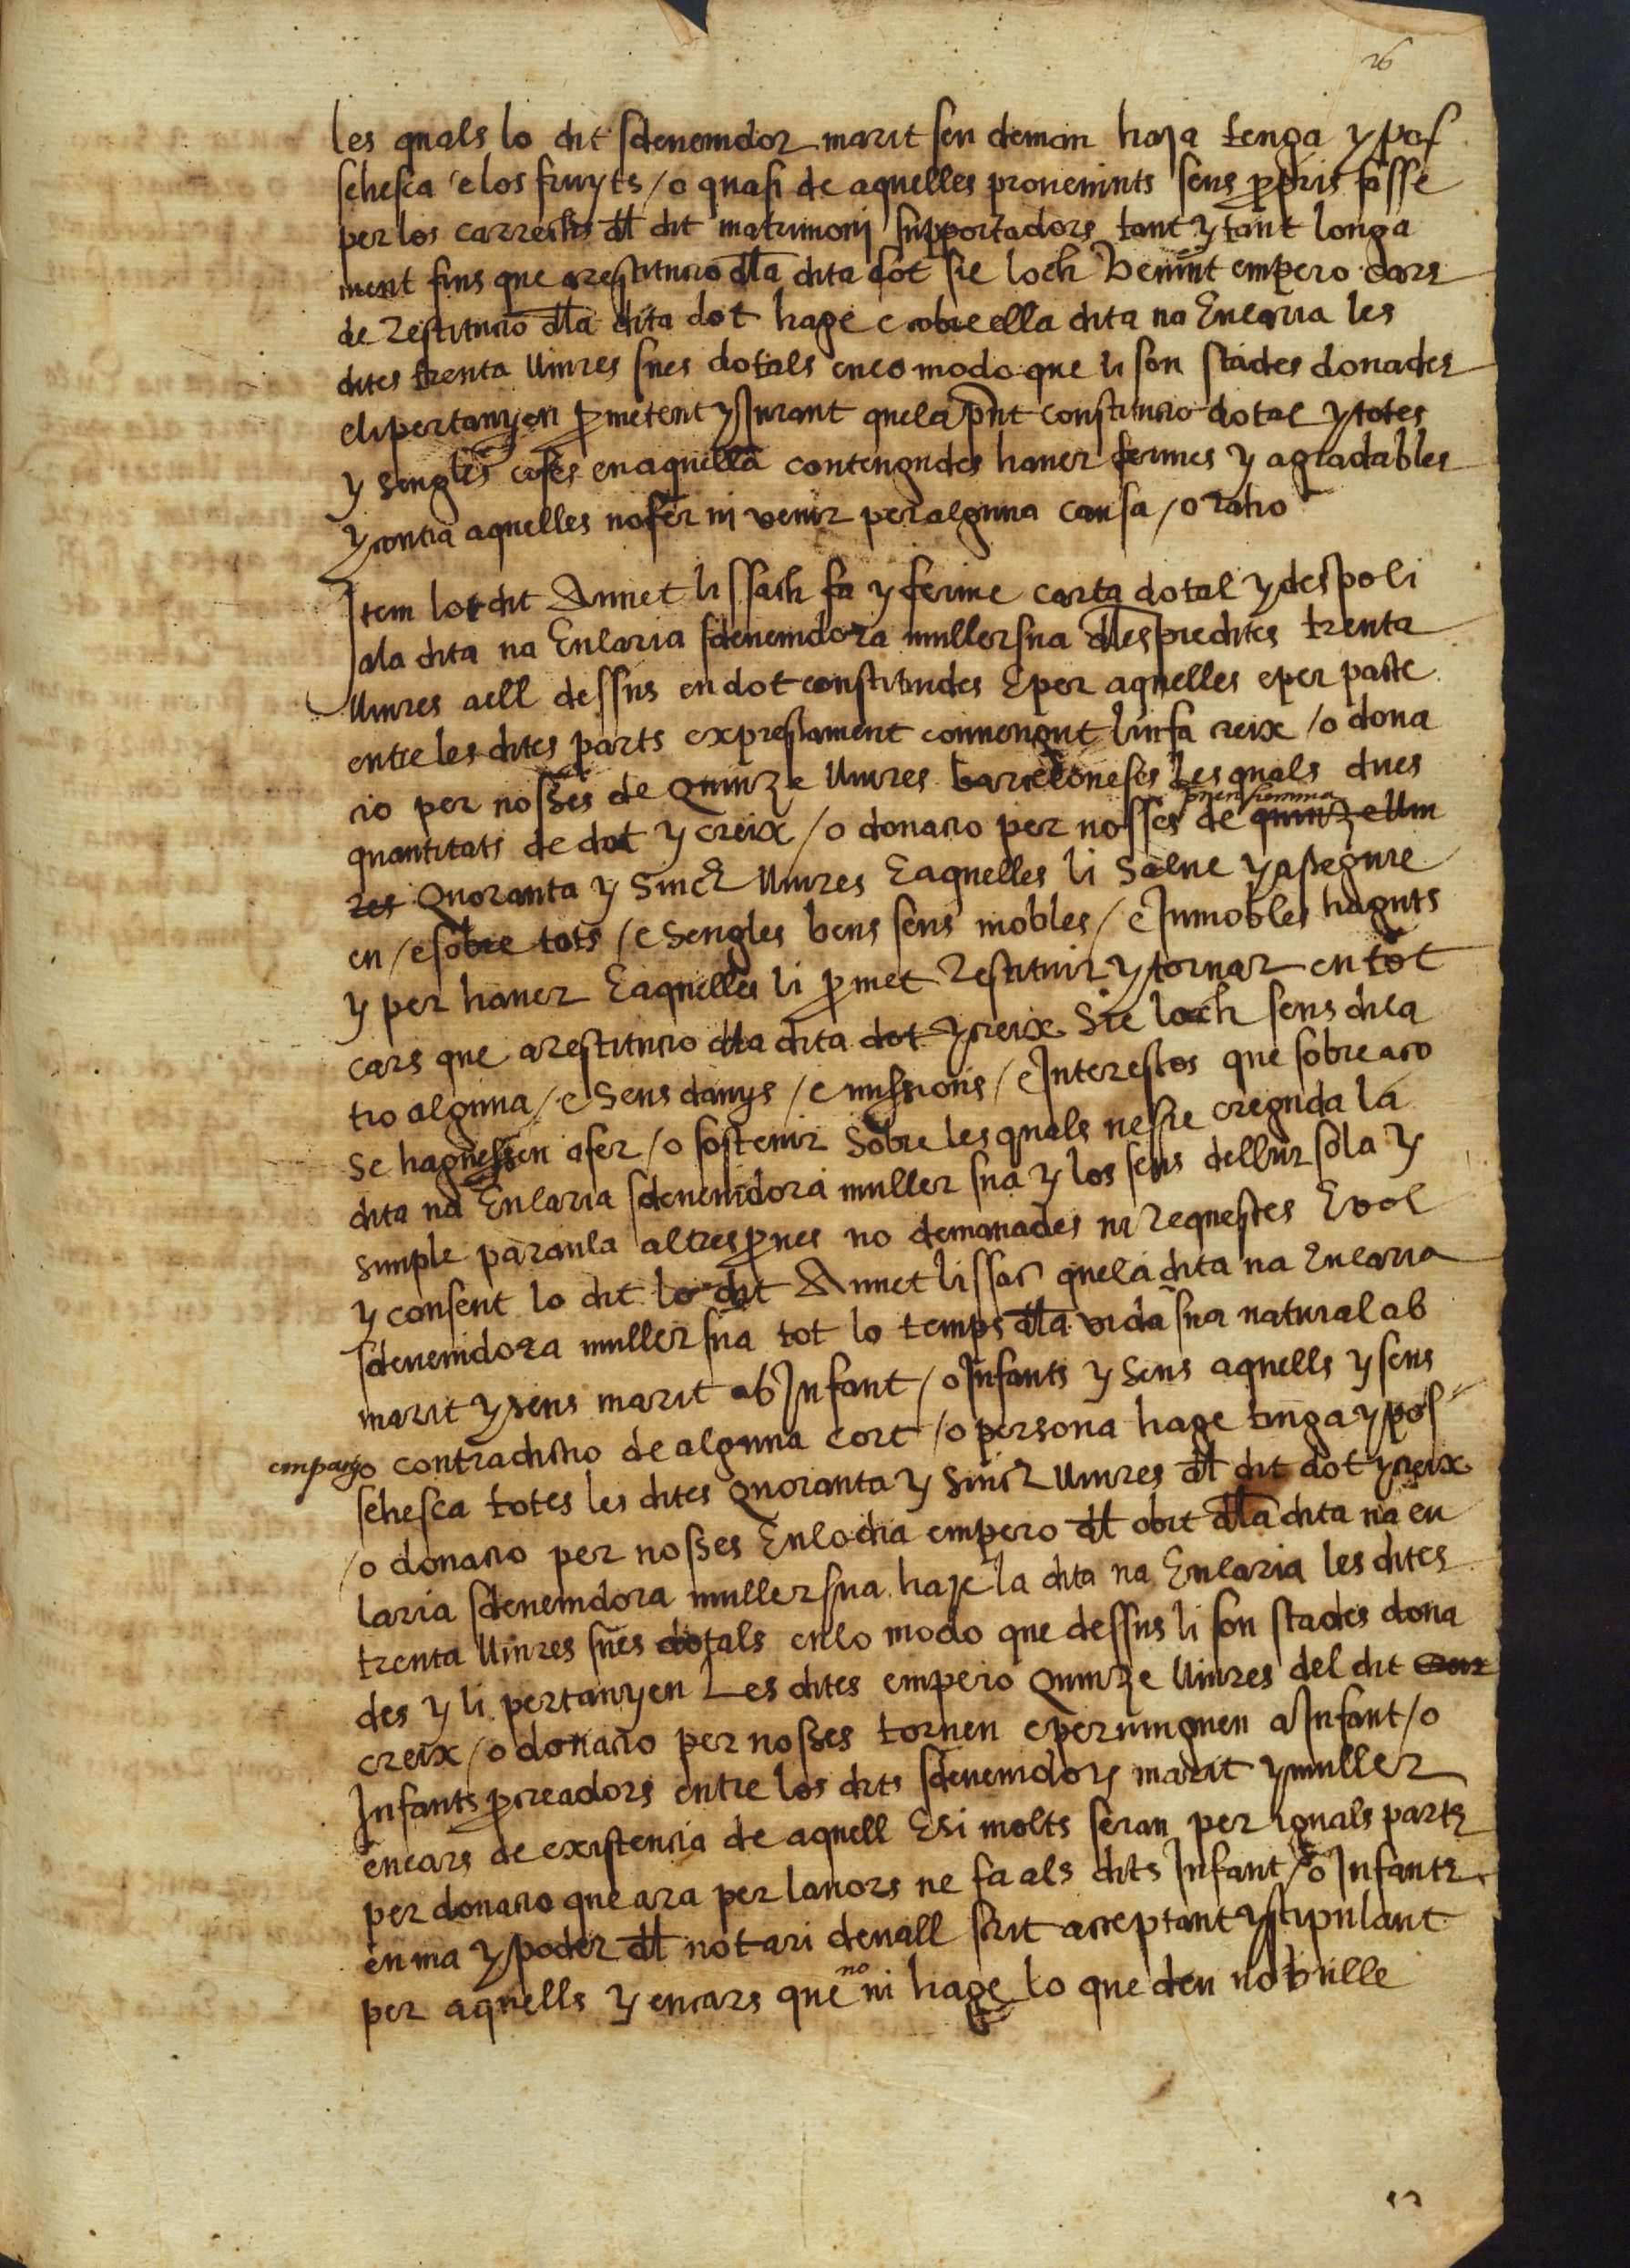 26
les quals lo dit sdevenidor marit seu deman haja tenga y pos
sehesca e los fruyts / o quasi de aquelles provenints sens p̱pris fasse
per los carrechs dl dit matrimoni supportadors tant y tant longa
ment fins que a restitucio dla dita dot sie loch Venint empero cars
de restitucio dla dita dot hage e cobre ella dita na Eularia les
dites trenta lliures sues dotals en lo modo que li son stades donades
e li pertanyen p̱metent y jurant que la pnt constitucio dotal y totes
y sengles coses en aquella contengudes haver fermes y agradables
y contra aquelles no fer ni venir per alguna causa / o raho
Item lo dit Annet lissach fa y ferme carta dotal y despoli
a la dita na Eularia sdevenidora muller sua dles predites trenta
lliures a ell dessus en dot constituides E per aquelles e per pacte
entre les dites parts expressament convengut li'n fa creix / o dona
cio per nosses de Quinze lliures barceloneses les quals dues
quantitats de dot y creix / o donacio per nosses de quinze lliu
prenen summa
res Quoranta y Sinch lliures E aquelles li Salve y assegure
en / e sobre tots / e Sengles bens seus mobles / e Inmobles haguts
y per haver E aquelles li p̱met restituir y tornar en tot
cars que a restitucio dla dita dot y creix Sie loch sens dila
tio alguna / e Sens danys / e missions / e Interessos que sobre aco
Se haguessen a fer / o sostenir Sobre les quals ne sie creguda la
dita na Eularia sdevenidora muller sua y los seus de llur sola y
Simple paraula altres p̱ves no demanades ni requestes E vol
y consent lo dit lo dit Annet lissac que la dita na Eularia
sdevenidora muller sua tot lo temps dla vida sua natural ab
marit y sens marit ab Infant / o Infants y Sens aquells y sens
empaig o contradictio de alguna cort / o persona hage tinga y pos
sehesca totes les dites Quoranta y Sinch lliures dl dit dot y creix
/ o donacio per nosses E un lo dia empero dl obit dla dita na Eu
laria sdevenidora muller sua haje la dita na Eularia les dites
trenta lliures sues dotals en lo modo que dessus li son stades dona
des y li pertanyen Les dites empero Quinze lliures del dit
creix / o donacio per nosses tornen e pervinguen a Infant / o
Infants p̱creadors entre los dits sdevenidors marit y muller
en cars de existencia de aquell E si molts seran per iguals parts
per donacio que ara per lavors ne fa als dits Infant / o Infants
en ma y poder dl notari devall scrit acceptant y stipulant
per aquells y en cars que no ni hage lo que deu no vulle